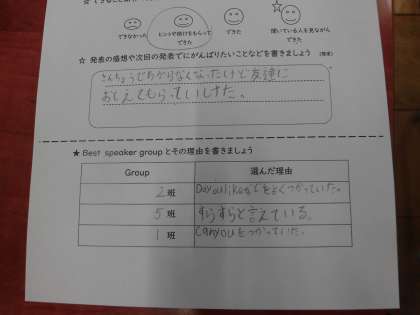 できなかった
ヒントや助けをもらってできた
できた
聞いている人を見ながらできた
☆ 発表の感想や次回の発表でにがんばりたいことなどを書きましょう
きんちょうしてわからなくなったけど友達に
おしえてもらっていいけた。
★ Best speaker group とその理由を書きましょう
Group 選んだ理由
2 班 Do you likeなどをよくつかっていた。
5 班 すらすらと言えている。
1 班 Can youをつかっていた。